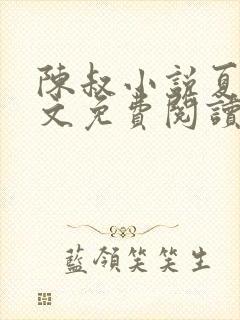 陳叔小説夏
文免費閱讀
藍領笑笑生